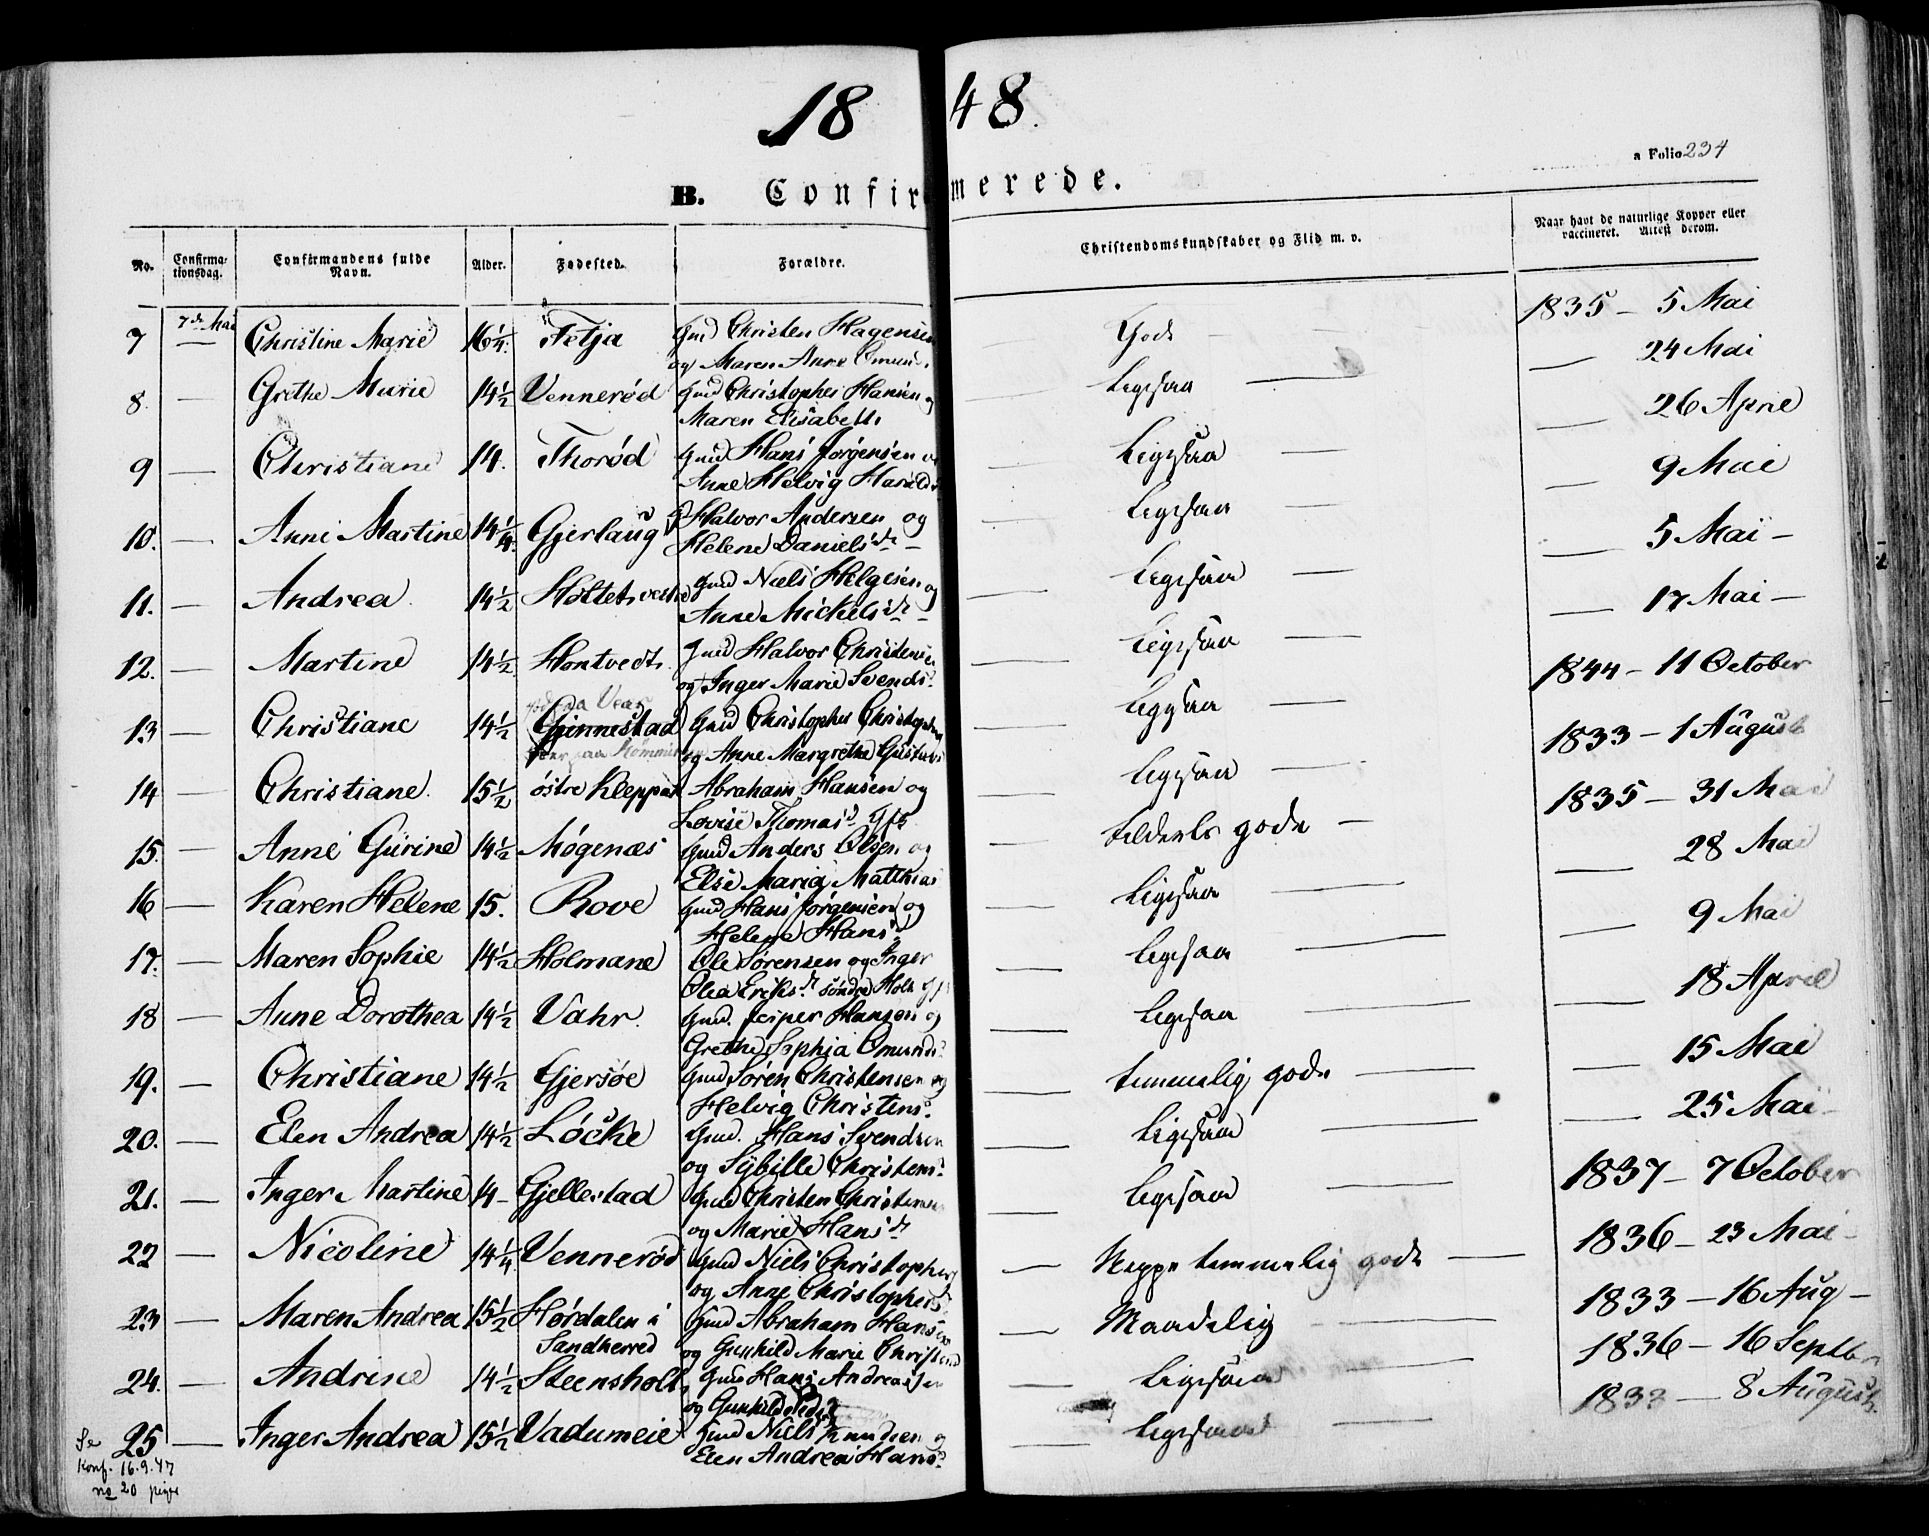 1848.
a Folio 234
B. Confirmerede.
No. Confirmationsdag. Confirmandens fulde Navn. Alder. Fødested. Forældre. Christendomskundskaber og Flid m. v. Naar havt de naturlige Kopper eller vaccineret. Attest derom.
7 7de Mai Christine Marie 16 1/4. Fetja Gmd Christen Hagensen God 1835 – 5 Mai
og Maren Anne
8. — Grethe Marie 14 1/2 Vennerød Gmd Christopher Hansen og Ligesaa — 24 Mai
Maren Elisabeth
9 — Christiane 14. Thorød Gmd Hans Jørgensen Ligesaa — 26 April
Anne Helvig Haralds
10. — Anne Martine 14 1/4. Gjerlaug Halvor Andersen og Ligesaa — 9 Mai
Helene Daniels dt
11. — Andrea 14 1/2 Holtet vestre Gmd Niels Helgesen og Ligesaa — 5 Mai –
Anne Mickels dt
12. — Martine 14 1/2 Hontvedt Gmd Halvor Christensen Ligesaa — 17 Mai –
og Inger Marie Svends
13 — Christiane 14 1/2 Ginnestad Gmd Christopher Ligesaa 1844 – 11 October
og Anne Margrethe
14 — Christiane 15 1/2 østre Kleppan Abraham Hansen og Ligesaa 1833 – 1 August
Lovise Thomas d. gft
15. — Anne Gurine 14 1/2 Møgenæs Gmd Anders Olsen og gode 1835 – 31 Mai
Else Maria Matthias
16 — Karen Helene 15. Rove Gmd Hans Jørgensen og Ligesaa — 28 Mai
Helene Hans
17. — Maren Sophie 14 1/2 Holmane Ole Sørensen og Inger Ligesaa — 9 Mai
Olea Eriks dt søndre Holt
18 — Anne Dorothea 14 1/2 Vahr. Gmd. Jesper Hansen og Ligesaa — 18 April
Grethe Sophia Omunds
19. — Christiane 14 1/2 Gjersøe Gmd Søren Christensen og temmelig gode — 15 Mai
Helvig Christens
20. — Elen Andrea 14 1/2 Løcke Gmd. Hans Svendsen Ligesaa — 25 Mai
og Sybille Christens
21. — Inger Martine 14 – Gjellestad Gmd Christen Christensen Ligesaa 1837 – 7 October
og Marie Hans dt
22 — Nicoline 14 1/4 Vennerød Gmd Niels Christophers Neppe temmelig gode 1836 – 23 Mai
og Anne Christophers
23 — Maren Andrea 15 1/2 Hørdalen i Gmd Abraham Hansen Maadelig 1833 – 16 Aug –
Sandherred og Gunhild Marie
24. — Andrine 14 1/2 Steensholt Gmd Hans Andreasen Ligesaa 1836 – 16 Septbr
og Gunhild
25 — Inger Andrea 15 1/2 Vadumeie Gmd Niels Knudsen og Ligesaa 1833 — 8 August
Elen Andrea Hans
Se
Konf. 16.9.47
no 20 piger